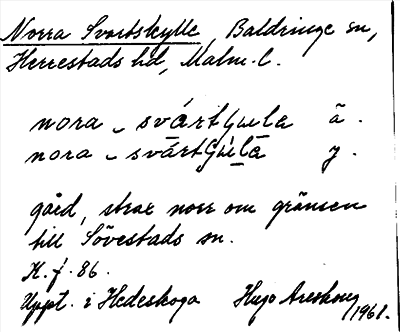 Norra Svartskylle, Baldringe sn,
Herrestads hd, Malm. l.
nora - svártʃuela ā.
nora - svā́rtʃúlā y.
gård, strax norr om gränsen
till Sövestads sn.
K. f. 86.
Uppt. i Hedeskoga Hugo Areskoug 1961.